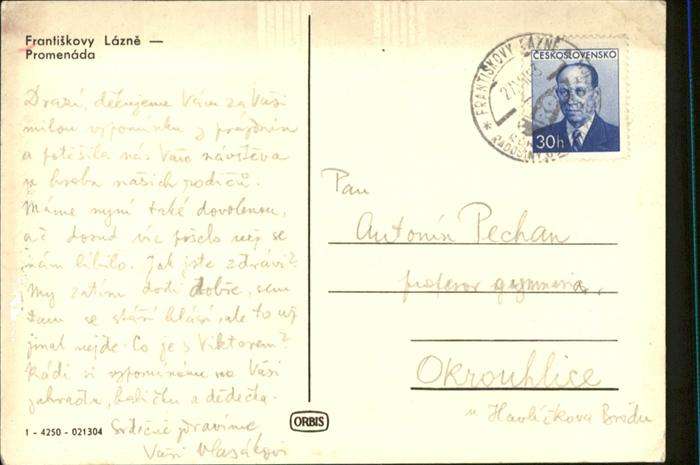 Františkovy Lázně —
Promenáda
Drazí, děkujeme Vám za Vaši
milou vzpomínku z prázdnin
a potěšila nás Vaše návštěva
u hrobu našich rodičů.
Máme nyní také dovolenou,
a č dosud víc pršelo než se
nám líbilo. Jak jste zdrávi?
My zatím dosti dobře, sem
tam se stáří hlásí, ale to už
jinak nejde. Co je s Viktorem?
Rádi si vzpomínáme na Vaši
zahradu, babičku a dědečka.
Srdečně zdravíme
Vaši Vlasákovi
1 - 4250 - 021304
ORBIS
* FRANTIŠKOVY LÁZNĚ
RADOUNÝ
ČESKOSLOVENSKO
30h
Pan
Antonín Pechan
profesor gymnasia,
Okrouhlice
u Havlíčkova Brodu